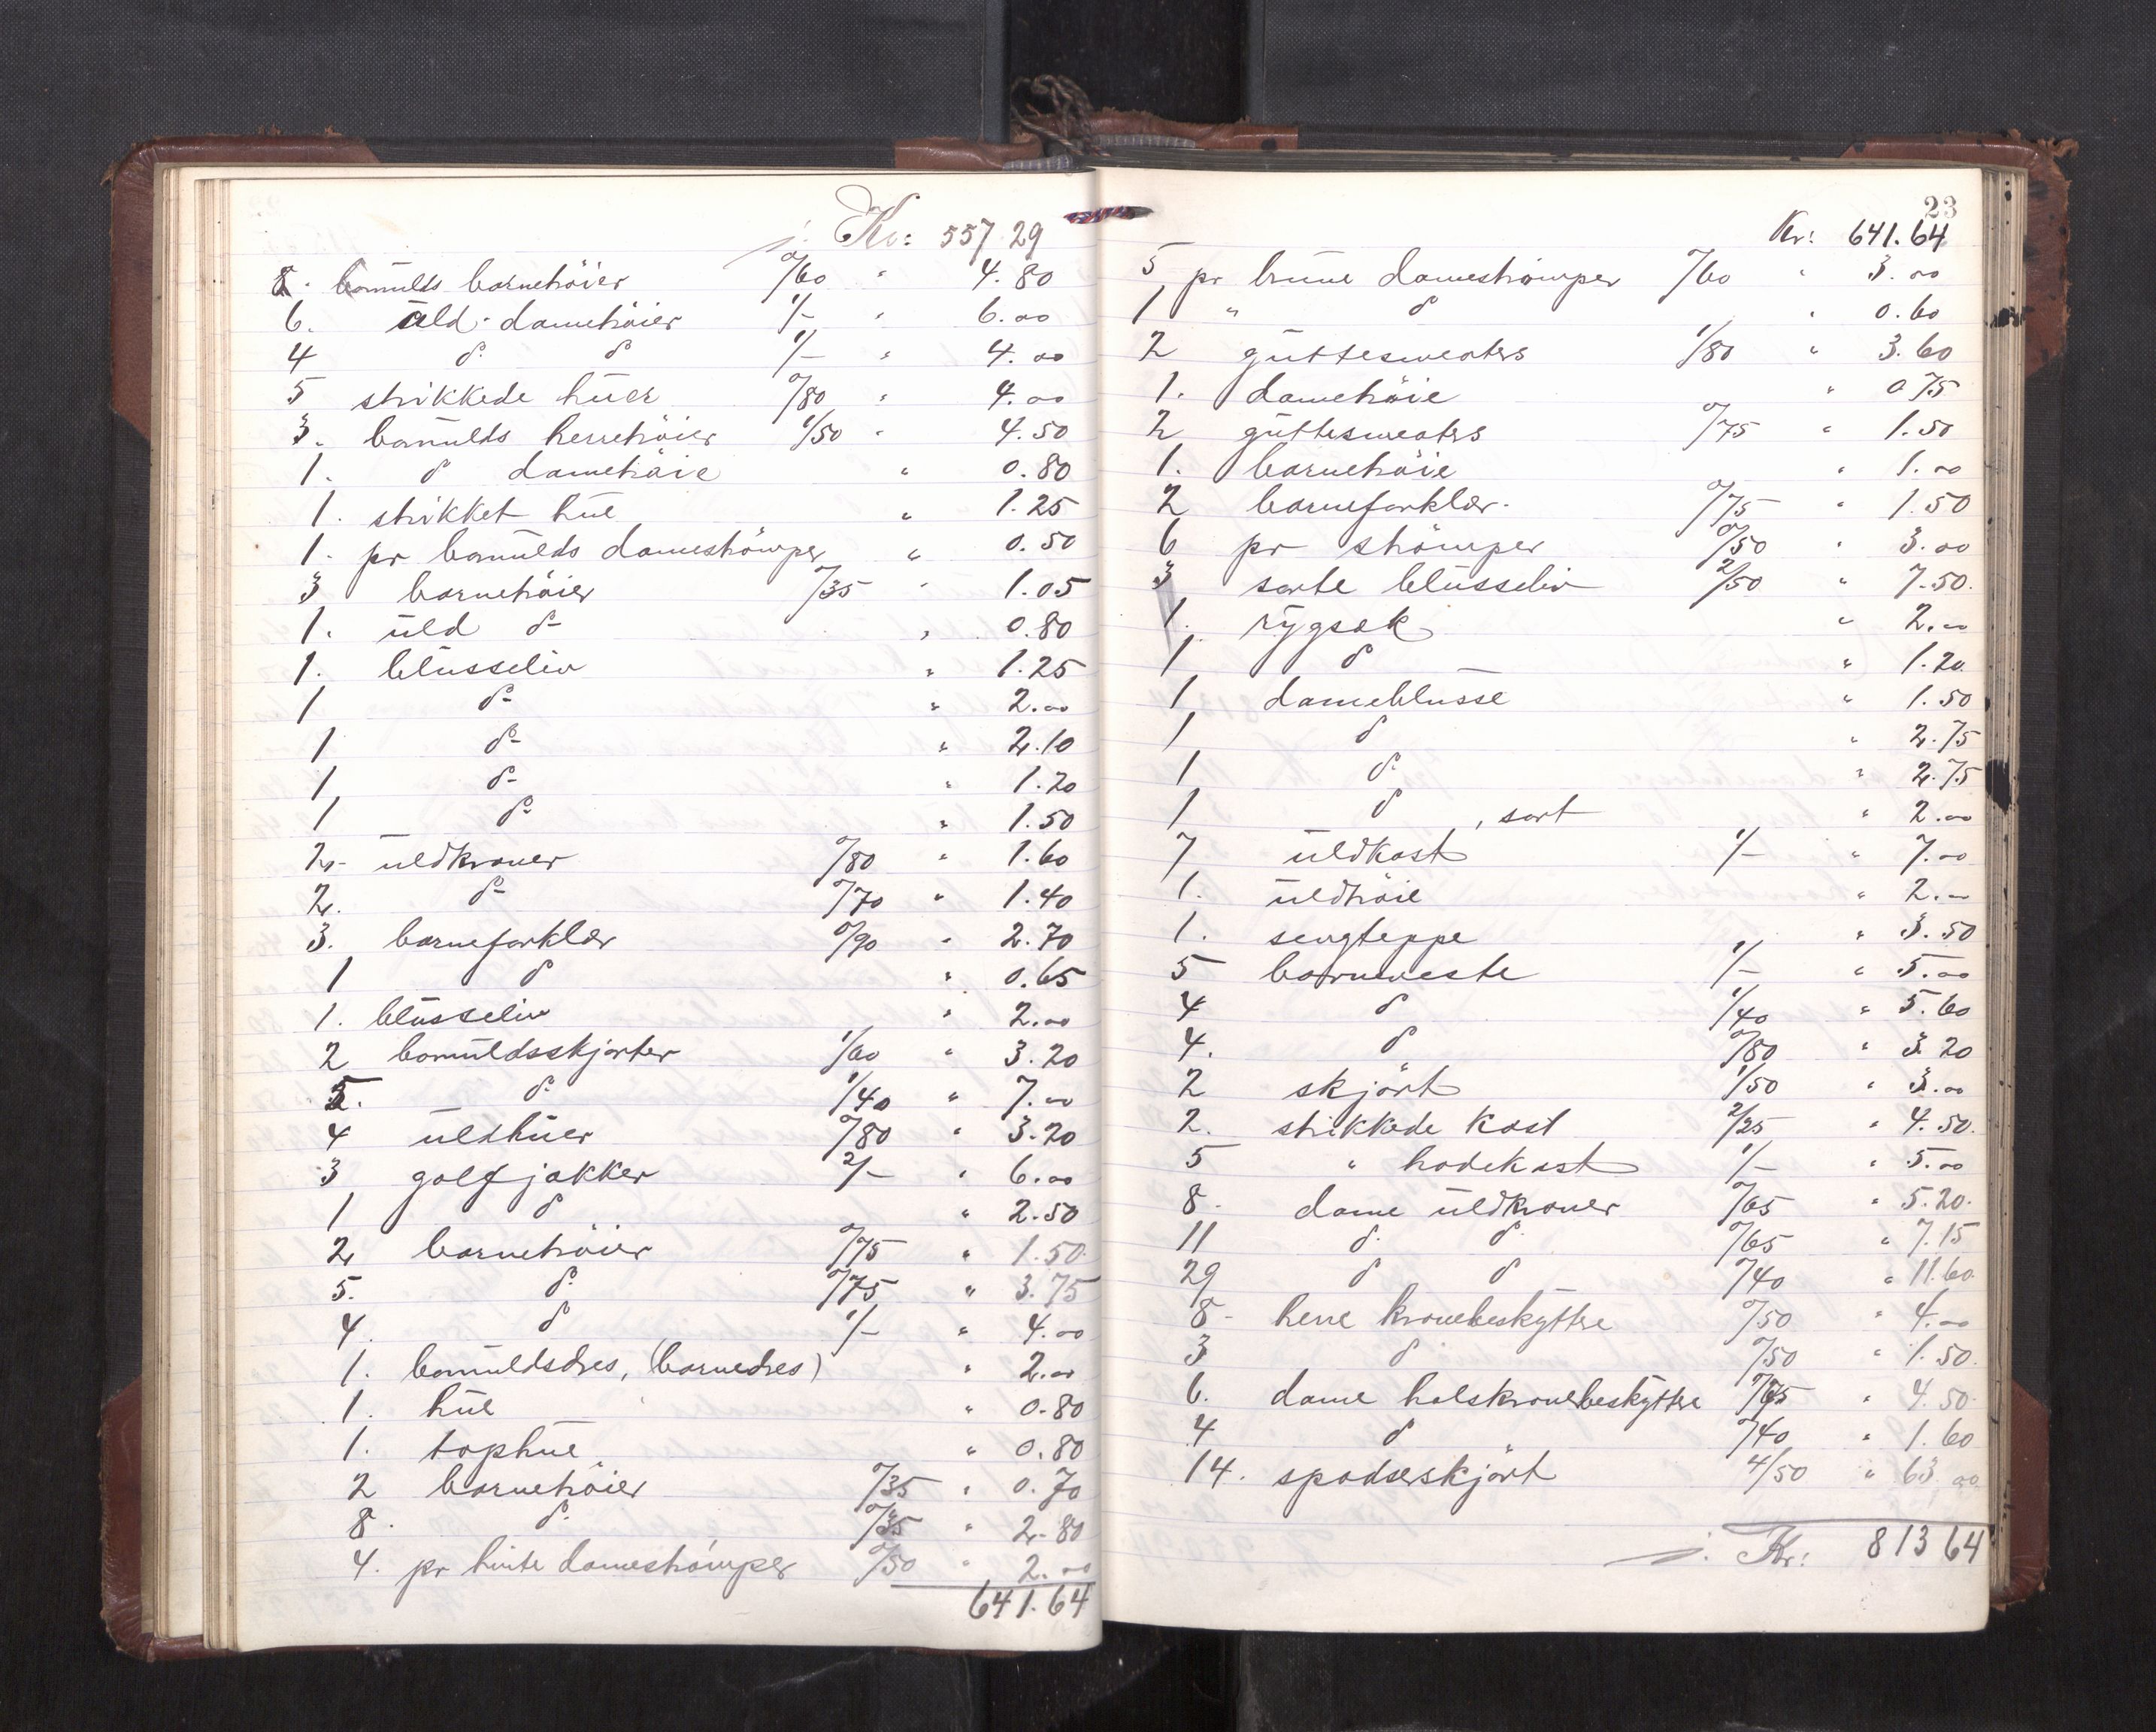 Kr: 557.29
8. bomulds barnetröier 0/60 " 4.80
6. uld-dametröier 1/- " 6.00
4 do. do 1/- " 4.00
5 strikkede huer 0/80 " 4.00
3. bomulds herretröier 1/50 " 4.50
1. do dametröie " 0.80
1. strikket hue " 1.25
1. pr bomulds dameströmper " 0.50
3 barnetröier 0/35 " 1.05
1. uld do- " 0.80
1. blusseliv " 1.25
1 do- " 2.00
1 do- " 2.10
1 do- " 1.20
1 do- " 1.50
2. uldkraver 0/80 " 1.60
2. do- 0/70 " 1.40
3. barneforklær 0/90 " 2.70
1 do " 0.65
1. blusseliv " 2.00
2 bomuldsskjorter 1/60 " 3.20
5. do. 1/40 " 7.00
4 uldhuer 0/80 " 3.20
3 golfjakker 2/- " 6.00
1 do " 2.50
2 barnetröier 0/75 " 1.50
5. do. 0/75 " 3.75
4. do 1/- " 4.00
1. bomuldsdres, (barnedres) " 2.00
1. hue " 0.80
1. tophue " 0.80
2 barnetröier 0/35 " 0.70
8. do. 0/35 " 2.80
4. pr hvite dameströmper 0/50 " 2.00
641.64
23
Kr: 641.64
5 pr brune dameströmper 0/60 " 3.00
1 " do " 0.60
2 guttesweaters 1/80 " 3.60
1. dametröie " 0 75
2 guttesweaters 0/75 " 1.50
1. barnetröie " 1.00
2 barneforklær. 0/75 " 1.50
6 pr strömper 0/50 " 3.00
3 sorte blusseliv 2/50 " 7.50.
1. rygsæk " 2.00
1 do " 1.20.
1 dameblusse " 1.50
1 do " 2.75
1 do. " 2.75
1 do , sort " 2.00
7 uldkast 1/- " 7.00
1. uldtröie " 2.00
1. sengteppe " 3.50
5 barneveste 1/- " 5.00
4 do 1/40 " 5.60
4. do 0/80 " 3.20
2 skjört 1/50 " 3.00
2. strikkede kast 2/25 " 4.50.
5 " hodekast 1/- " 5.00
8. dame uldkraver 0/65 " 5.20.
11 do. do. 0/65 " 7.15
29 do do 0/40 " 11.60.
8- herre kravebeskyttre 0/50 " 4.00
3 do 0/50 " 1.50.
6. dame halskravebeskyttre 0/75 " 4.50.
4 do 0/40 " 1.60
14. spadserskjört 4/50 " 63.00
Kr: 813 64